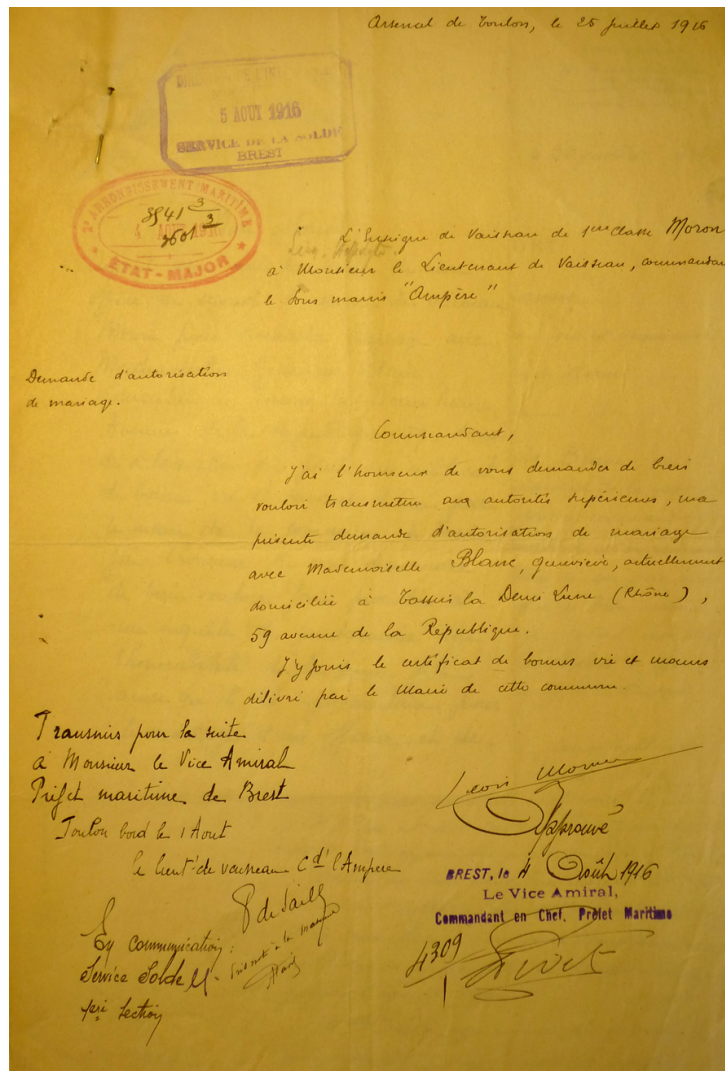 Arsenal de Toulon, le 25 juillet 1916
5 AOUT 1916
SERVICE DE LA SOLDE
BREST
2e ARRONDISSEMENT MARITIME
3
3
ETAT-MAJOR
L'Enseigne de Vaisseau de 1ère classe Moron
à Monsieur le Lieutenant de Vaisseau, commandan
le Sous marin "Ampère"
Demande d'autorisation
de mariage.
Commandant,
J'ai l'honneur de vous demander de bien
vouloir transmettre aux autorités supérieures, ma
présente demande d'autorisation de mariage
avec Mademoiselle Blanc, Geneviève, actuellement
domiciliée à Tassin la Demi Lune (Rhône),
59 avenue de la République.
J'y joins le certificat de bonnes vie et mœurs
délivré par le Maire de cette commune.
Transmis pour la suite
à Monsieur le Vice Amiral
Préfet maritime de Brest
Toulon bord le 1 Aout
le lieut. de vaisseau Cdt l'Ampere
Approuvé
BREST, le 4 Août 1916
Le Vice Amiral,
Commandant en Chef, Préfet Maritime
4309
En communication:
Service Solde
1ere Section